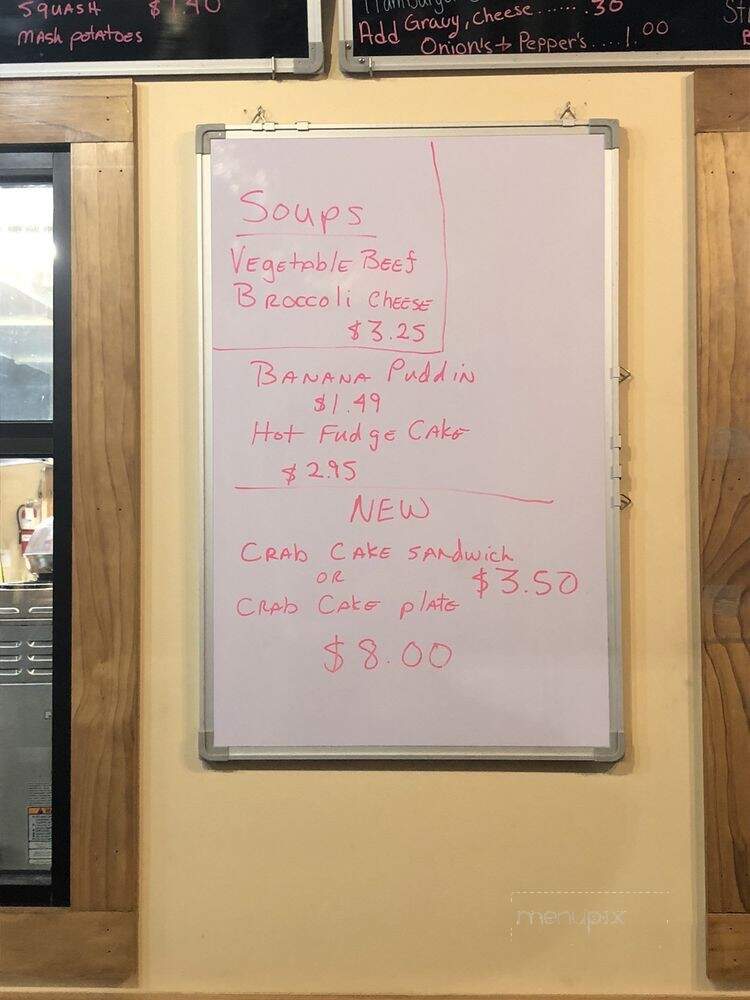 SQUASH $1.40
MASH POTATOES
Hamburger
Add Gravy, cheese ....... .30
Onion's + Pepper's .... 1.00
Soups
Vegetable Beef
Broccoli Cheese
$3.25
Banana Puddin
$1.49
Hot Fudge Cake
$2.95
NEW
Crab Cake sandwich
$3.50
OR
Crab Cake plate
$8.00
menupix